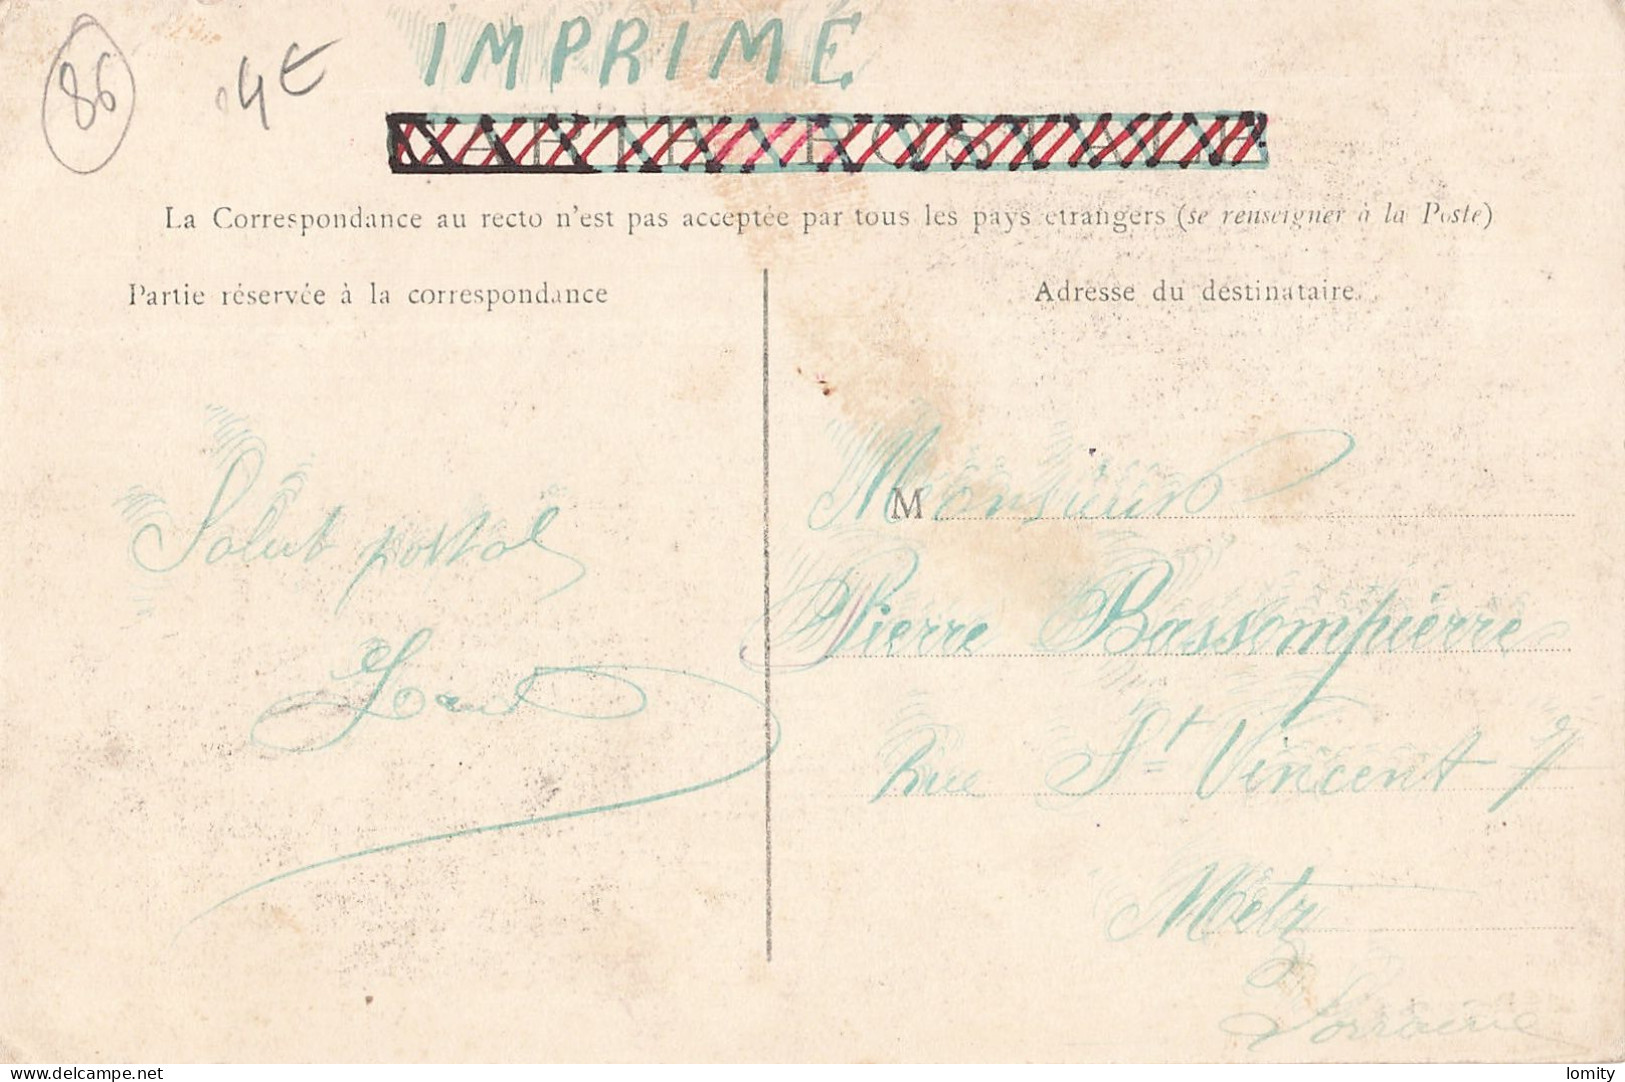 86
4€
IMPRIMÉ
CARTE POSTALE
La Correspondance au recto n'est pas acceptée par tous les pays etrangers (se renseigner à la Poste)
Partie réservée à la correspondance
Adresse du destinataire.
Salut postal
M Monsieur
Pierre Bassompierre
Rue St Vincent 7
Metz
Lorraine
delcampe.net
lomity